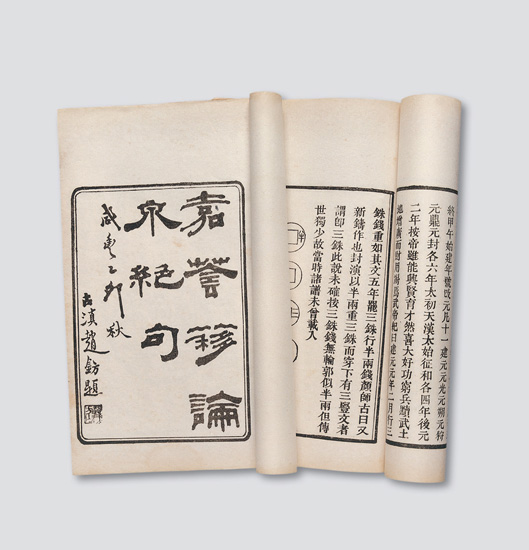 終甲午始建年號改元凡十一建元元光元朔元狩
元鼎元封各六年太初天漢太始征和各四年後元
二年按帝雖能興賢育才然喜大好功窮兵黷武土
廣而財用焉武帝紀曰建元元年二月行三
銖錢重如其文五年罷三銖行半兩錢顏師古曰又
新鑄作也封演以半兩重三銖而穿下有三豎文者
謂卽三銖此說未確按三銖錢無輪郭似半兩但傳
世獨少故當時諸譜未曾載入
嘉蔭簃論
泉絕句
咸豐乙卯秋
古滇趙題